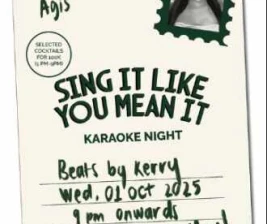 Agis
SELECTED
COCKTAILS
SING IT LIKE
YOU MEAN IT
KARAOKE NIGHT
Beats by Kerry
Wed, 01 Oct 2025
9 pm onwards